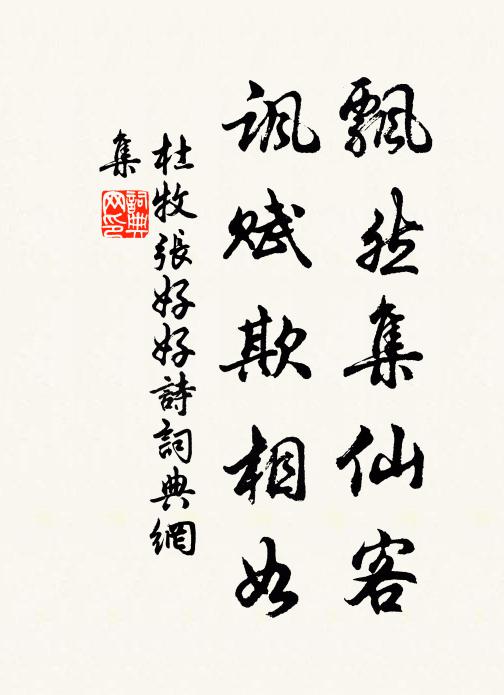 飄然集仙客
諷賦欺相如
杜牧張好好詩詞典網
集
詞典
网印